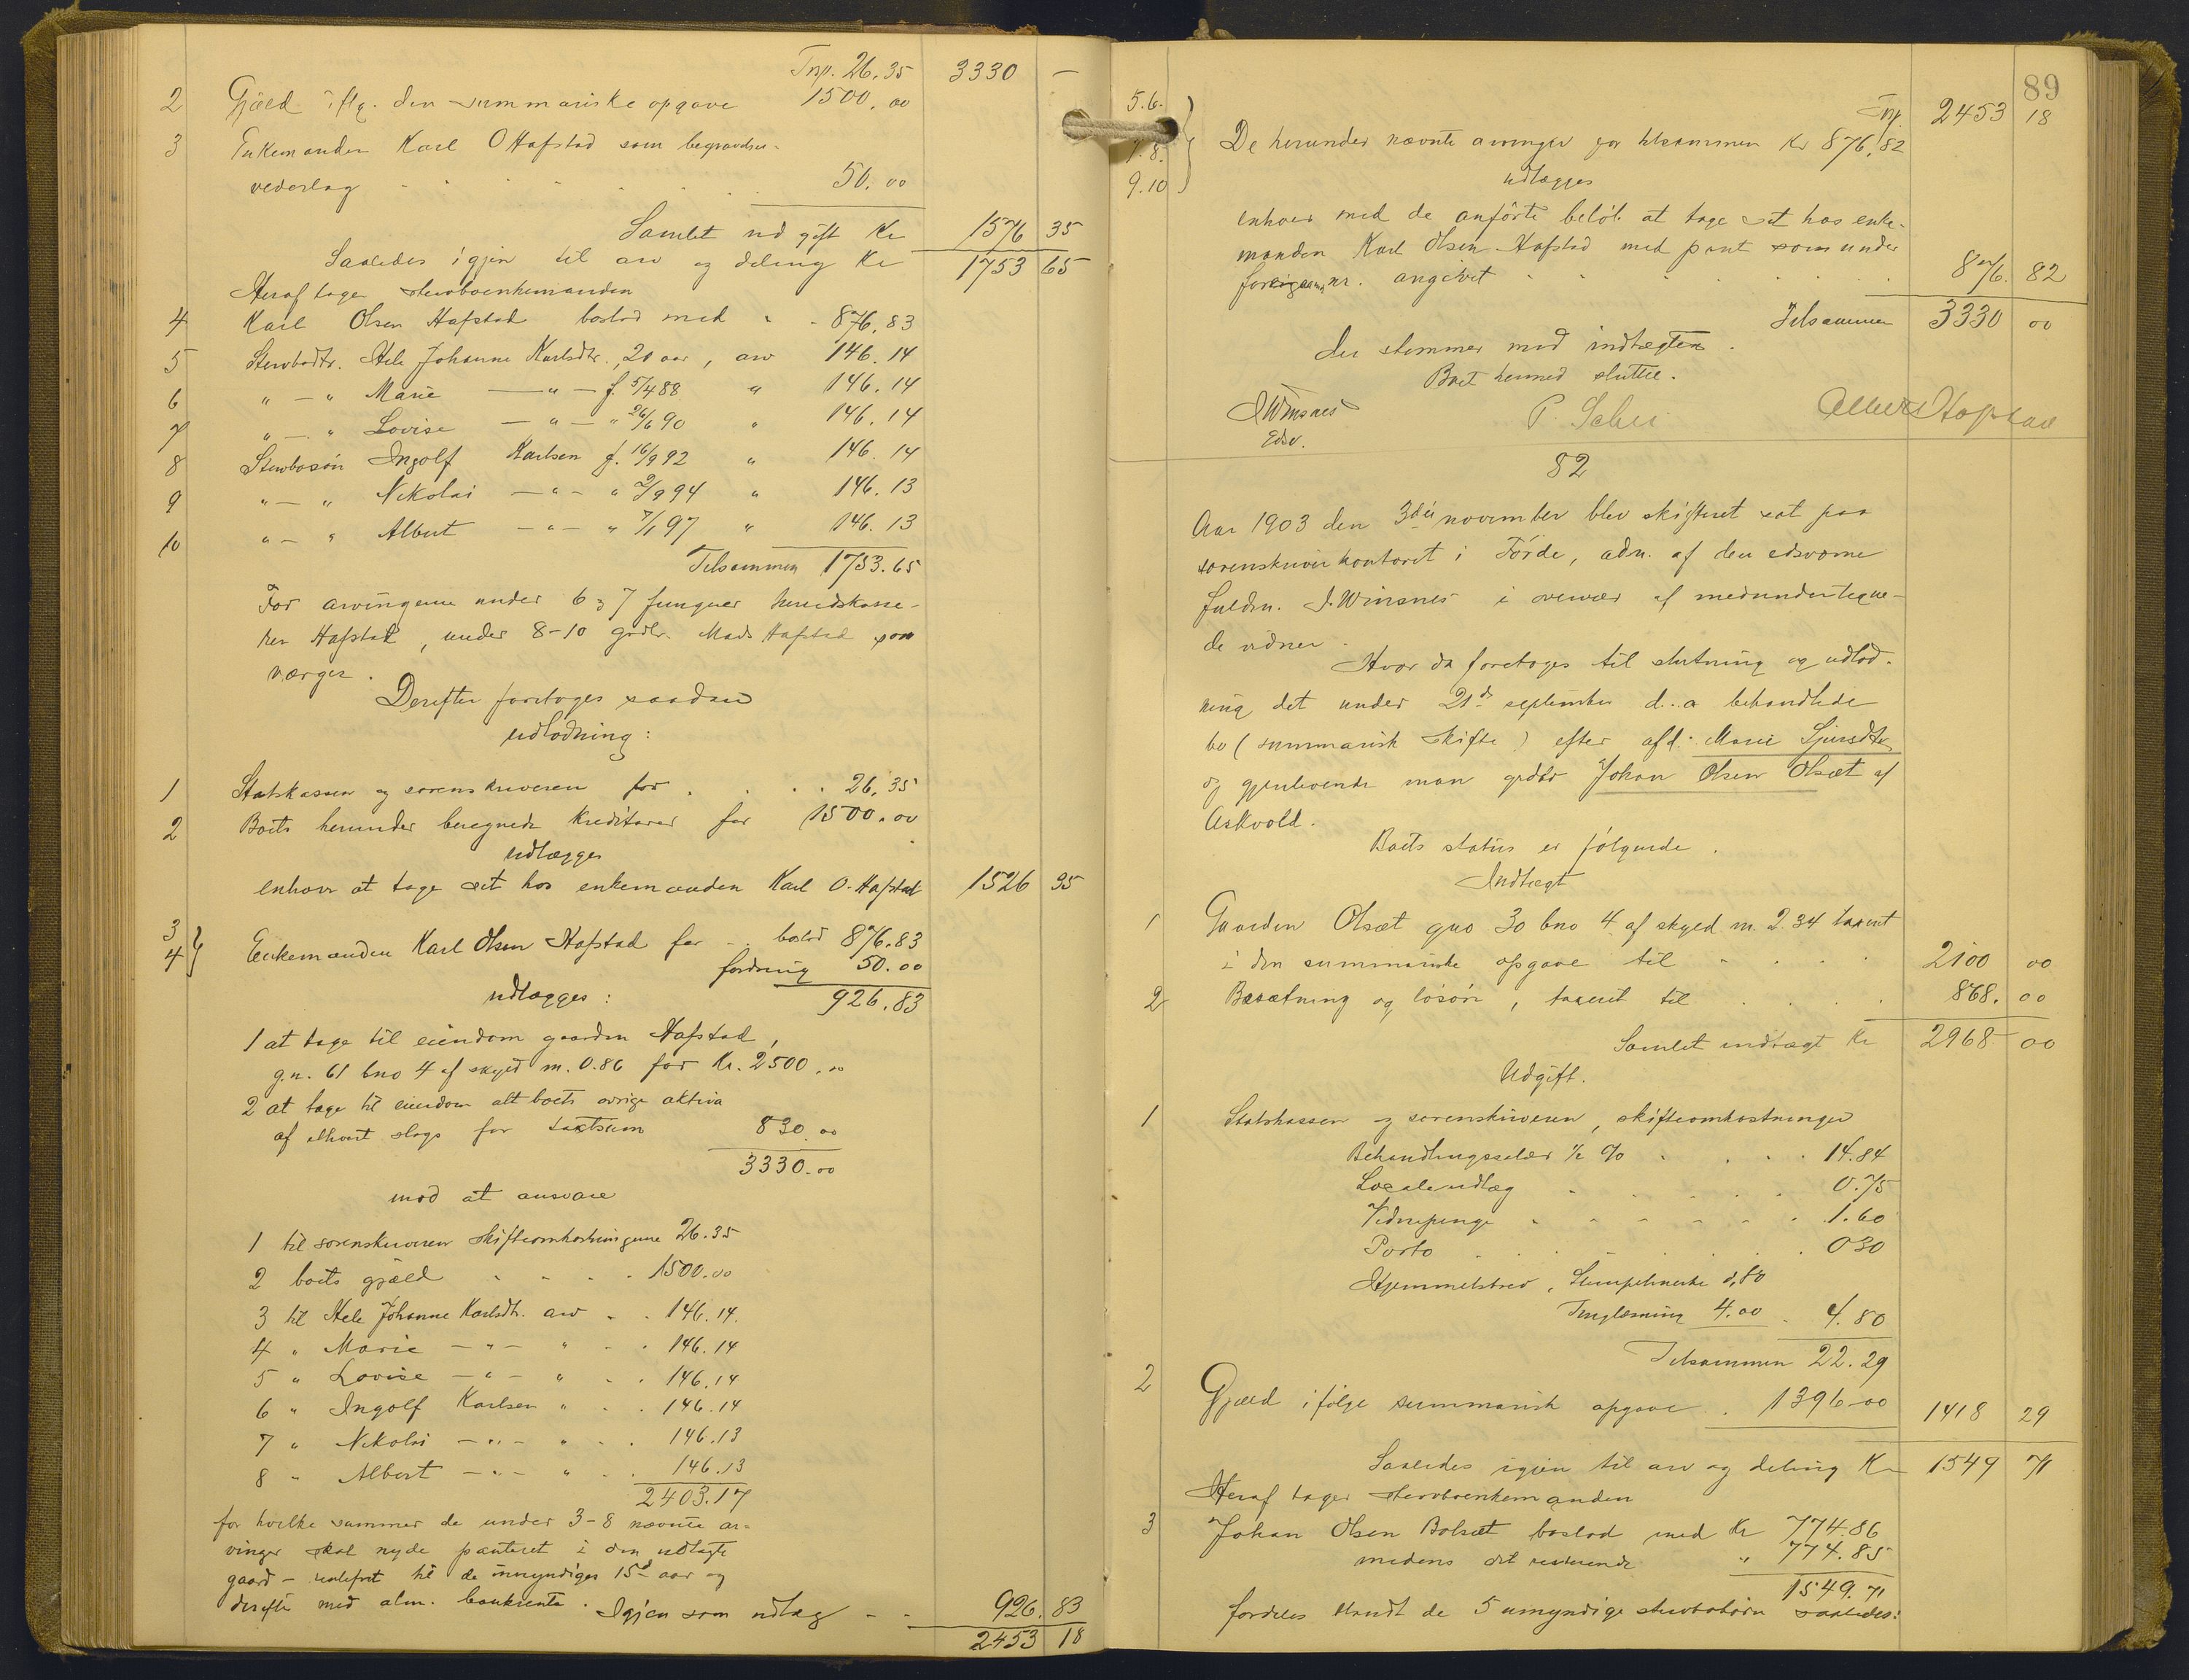 Trsp. 26.35 3330 —
2 Gjæld iflg. den summariske opgave 1500.00
3 Enkemanden Karl O Hafstad som begravelses-
vederlag 50.00
Samlet udgift Kr 1576 35
Saaledes igjen til arv og deling Kr 1753 65
Heraf tager stervboenkemanden
4 Karl Olsen Hafstad boslod med 876.83
5 Stervbodtr. Hele Johanne Karlsdtr., 21 aar, arv 146.14
6 " — " Marie — " — f. 5/4 88 " 146.14
7 " — " Lovise — " — " 26/6 90 " 146.14
8 Stervbosøn Ingolf Karlsen f. 16/9 92 " 146.14
9 " — " Nikolai — " — " 2/9 94 " 146.13
10 " — " Albert — " — " 7/1 97 " 146.13
Tilsammen 1753.65
For arvingerne under 6 og 7 fungerer herredskasse-
rer Hafstad, under 8-10 grdbr. Mads Hafstad som
værger.
Derefter foretoges saadan
udlodning:
1 Statskassen og sorenskriveren for 26.35
2 Boets herunder beregnede kreditorer for 1500.00
udlægges
enhver at tage sit hos enkemanden Karl O. Hafstad 1526 35
3
4 } Enkemanden Karl Olsen Hafstad for boslod 876.83
fordring 50.00
udlægges: 926.83
1 at tage til eiendom gaarden Hafstad,
g.n. 61 bno 4 af skyld m. 0.86 for Kr. 2500.00
2 at tage til eiendom alt boets øvrige aktiva
af ethvert slags for taxtsum 830.00
3330.00
mod at ansvare
1 til sorenskriveren skifteomkostningerne 26.35
2 boets gjæld 1500.00
3 til Hele Johanne Karlsdtr. arv 146.14.
4 " Marie — " — " 146.14
5 " Lovise — " — " 146.14
6 " Ingolf Karlsen " 146.14
7 " Nikolai — " — " 146.13
8 " Albert — " — " 146.13
2403.17
for hvilke summer de under 3-8 nævnte ar-
vinger skal nyde panteret i den udlagte
gaard – rentefrit til de umyndiges 15de aar og
derefter med alm. bankrente. Igjen som udlæg 926.83
2453 18
89
Trsp. 2453 18
5.6.
7.8.
9.10 } De herunder nævnte arvinger for tilsammen Kr 876,82
udlægges
enhver med de anførte beløb at tage sit hos enke-
manden Karl Olsen Hafstad med pant som under
nr. angivet 876. 82
Tilsammen 3330 00
der stemmer med indtægten.
Boet hermed sluttet.
J Winsnes P. Schei Albert Hafstad
Edsv.
82
Aar 1903 den 3die november blev skifteret sat paa
sorenskriverkontoret i Førde, adm. af den edsvorne
fuldm. J. Winsnes i overvær af medundertegne-
de vidner.
Hvor da foretoges til slutning og udlod-
ning det under 21de september d.a. behandlede
bo (summarisk skifte) efter afd. Marie Sjursdtr
og gjenlevende mand grdbr Johan Olsen Olsæt af
Askvold.
Boets status er følgende.
Indtægt
1 Gaarden Olsæt gno 30 bno 4 af skyld m. 2.34 taxeret
i den summariske opgave til 2100 00
2 Besætning og løsøre, taxeret til 868. 00
Samlet indtægt Kr 2968 00
Udgift.
1 Statskassen og sorenskriveren, skifteomkostninger
Behandlingssalær ½ % 14.84
Localeudlæg 0.75
Vidnepenge 1.60
Porto 0 30
Hjemmelsbrev, Stempelmerke 0,80
Tinglæsning 4.00 4.80
Tilsammen 22.29
2 Gjæld ifølge summarisk opgave 1396-00 1418 29
Saaledes igjen til arv og deling Kr 1549 71
Heraf tager stervboenkemanden
3 Johan Olsen Bolsæt boslod med Kr 774.86
medens det resterende " 774.85
1549.71
fordeles blandt de 5 umyndige stervbobørn saaledes: